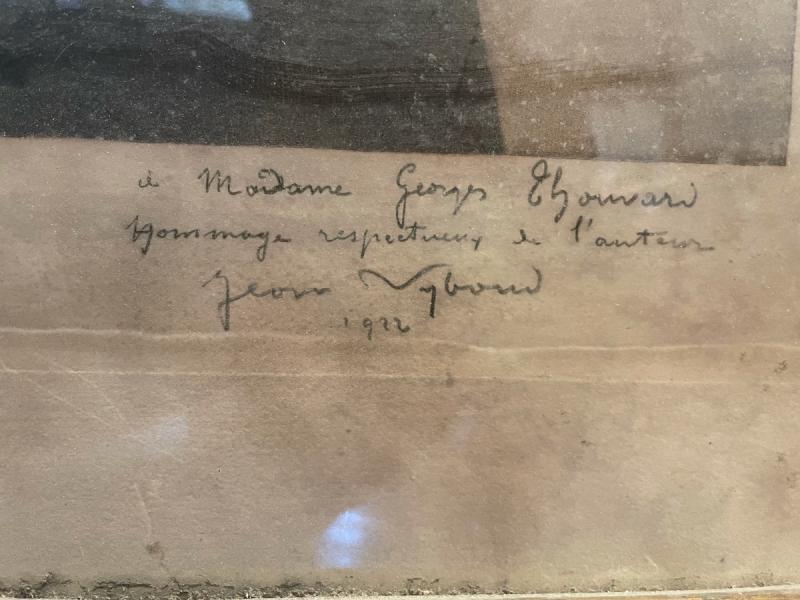 à Madame Georges Thouvard
Hommage respectueux de l'auteur
Jean Vyboud
1922